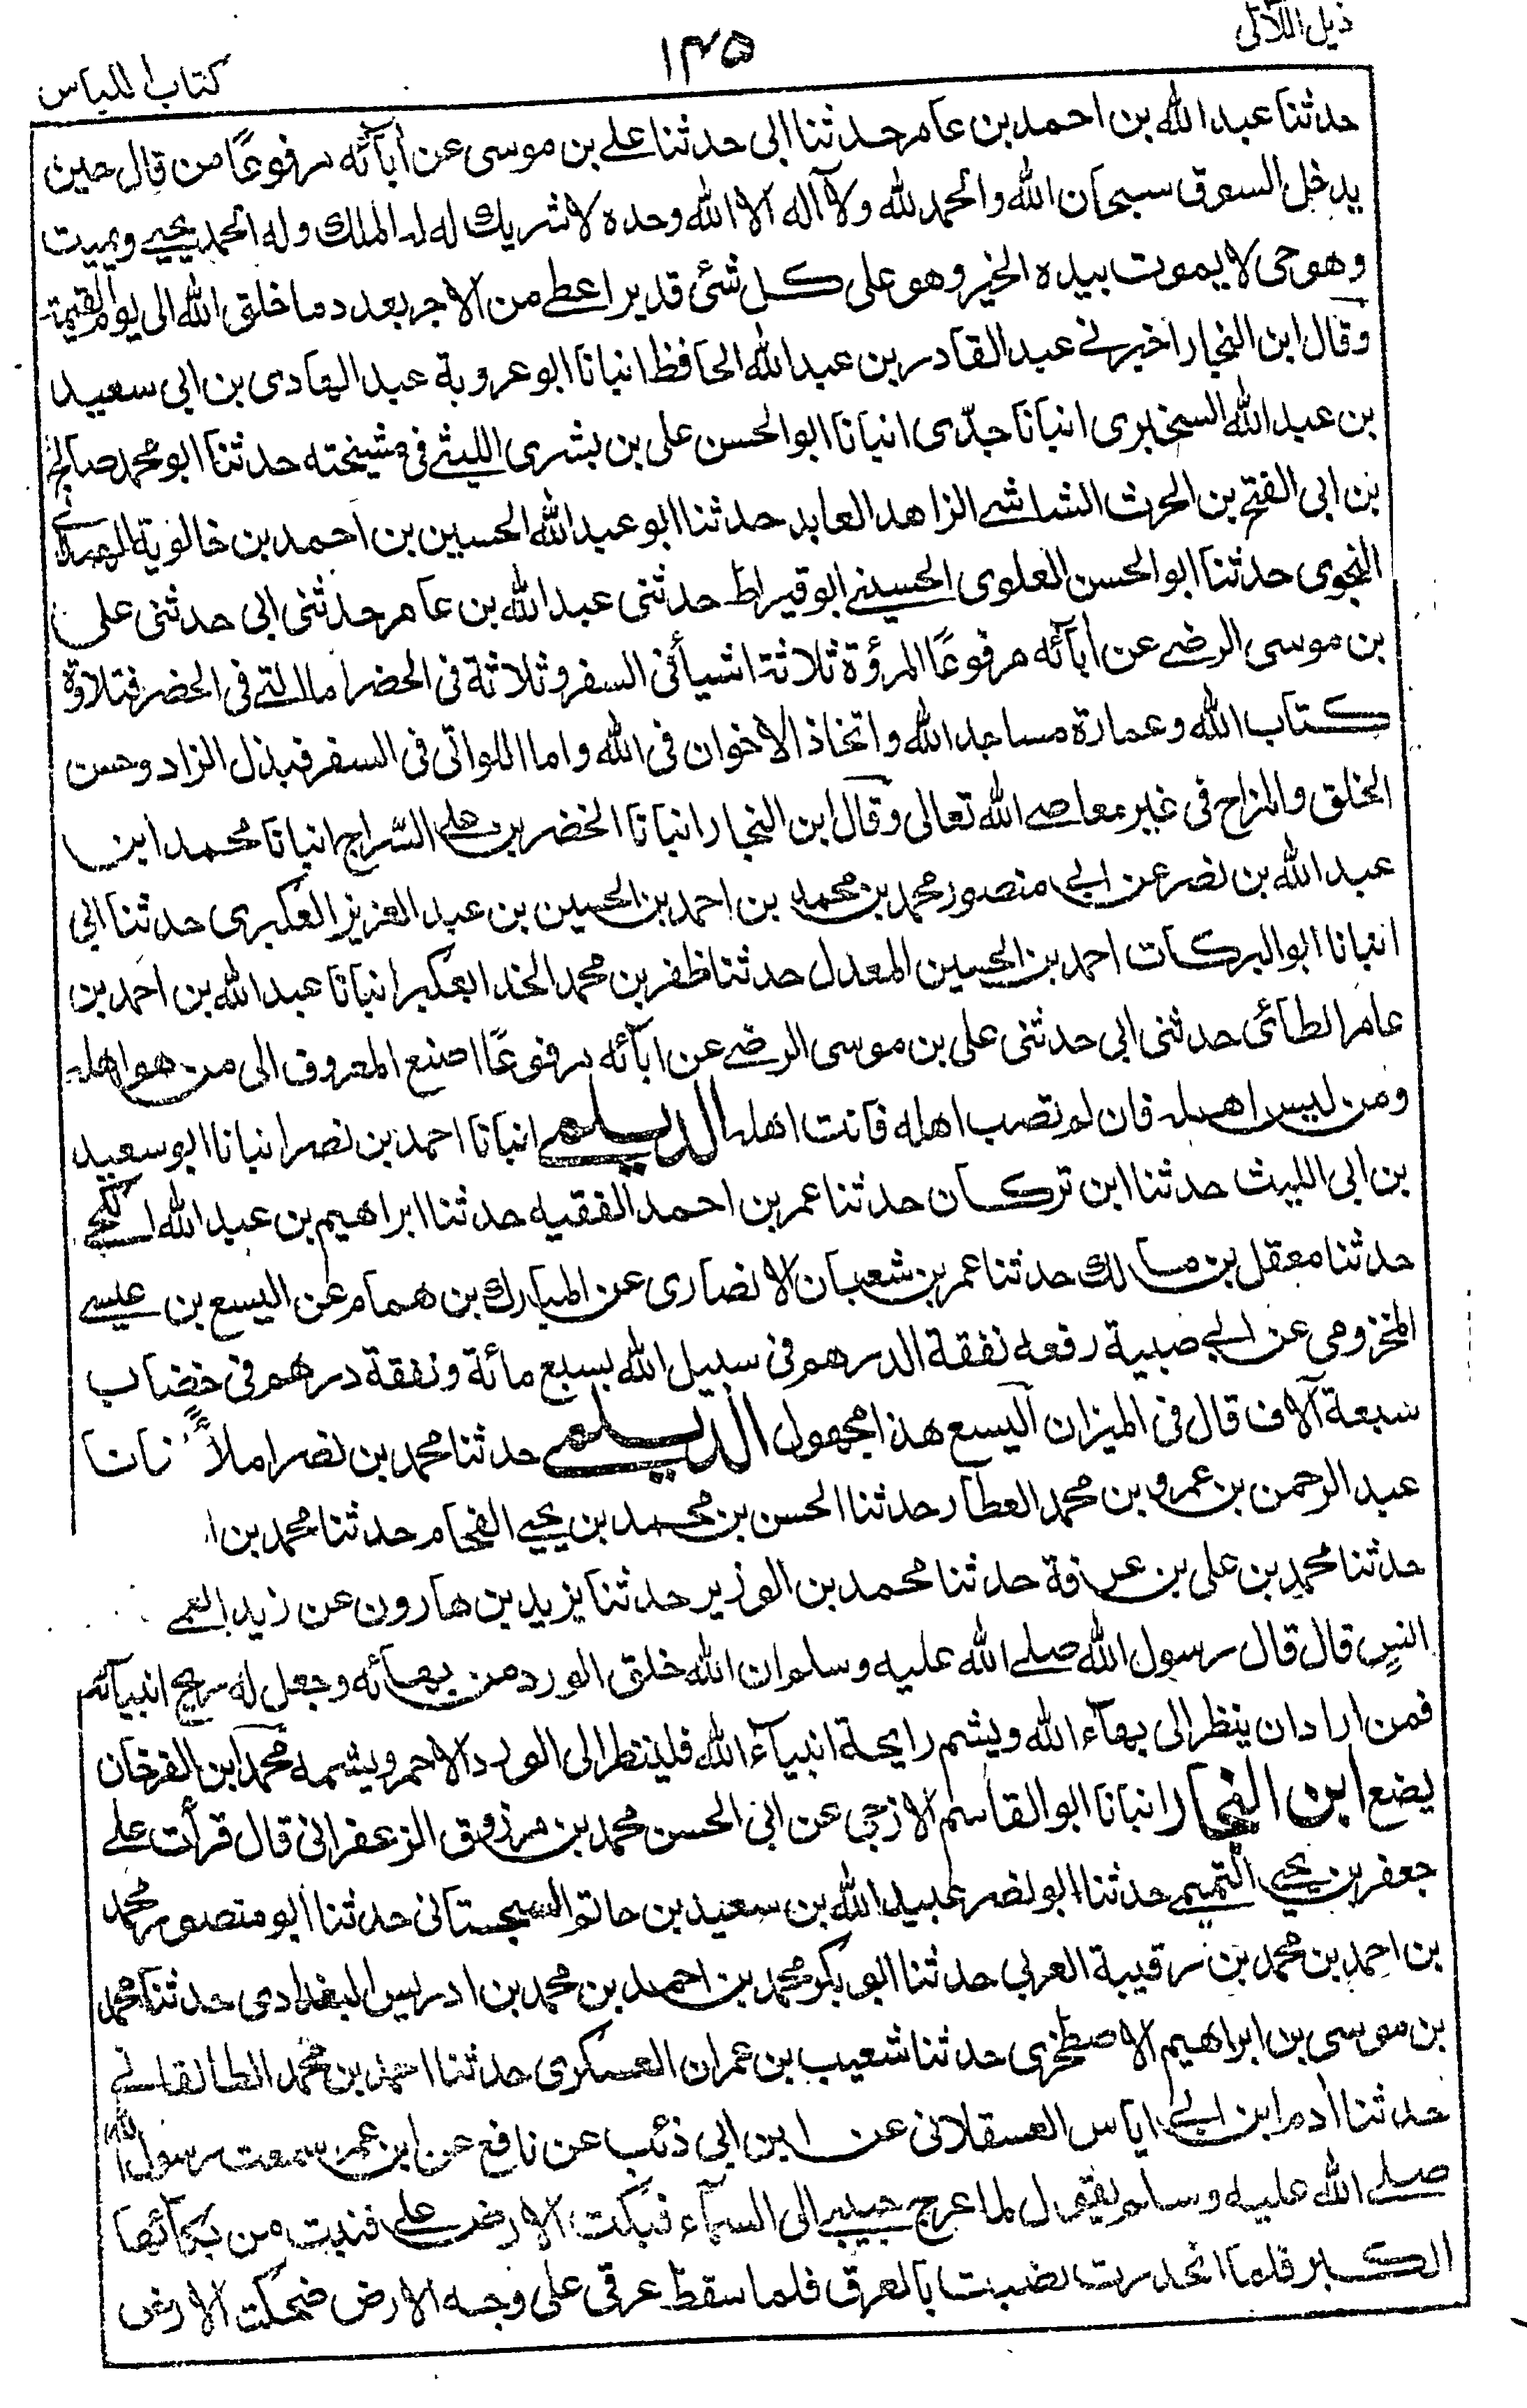 ذيل اللآلى
١٣٥
كتاب اللباس
حدثنا عبد الله بن احمد بن عامر حدثنا ابى حدثنا علے بن موسى عن أبآئه مرفوعًا من قال حين
يدخل السوق سبحان الله والحمد لله ولا آله الا الله وحده لا شريك له له الملك وله الحمد يحيے ويميت
وهو حى لا يموت بيده الخير وهو على كل شئ قدير اعطے من الاجر بعدد ما خلق الله الى يوم القيمة
وقال ابن النجار اخبرنے عبد القادر بن عبد الله الحافظ انبانا ابو عروبة عبد الهادى بن ابى سعيد
بن عبد الله السخبرى انبانا جدّى انبانا ابو الحسن على بن بشرى الليثے فى مشيخته حدثنا ابو محمد صالح
بن ابى الفتح بن الحرث الشاشے الزاهد العابد حدثنا ابو عبد الله الحسين بن احمد بن خالوية
النحوى حدثنا ابو الحسن العلوى الحسينے ابو قيراط حدثنى عبد الله بن عامر حدثنى ابى حدثنى على
بن موسى الرضے عن أبآئه مرفوعًا المرؤة ثلاثة اشيأ فى السفر وثلاثة فى الحضر اما التے فى الحضر فتلاوة
كتاب الله وعمارة مساجد الله واتخاذ الاخوان فى الله واما اللواتى فى السفر فبذل الزاد وحسن
الخلق والمزاح فى غير معاصے الله تعالى وقال ابن النجار انبانا الخضر بن علے السّراج انبانا محمد ابن
عبد الله بن نصر عن ابے منصور محمد بن محمد بن احمد بن الحسين بن عبد العزيز العكبرى حدثنا ابى
انبانا ابو البركات احمد بن الحسين المعدل حدثنا ظفر بن محمد الخدا بعكبرا انبانا عبد الله بن احمد بن
عامر الطائى حدثنى ابى حدثنى على بن موسى الرضے عن ابآئه مرفوعًا اصنع المعروف الى من هو اهله
ومن ليس اهله فان لم تصب اهله فانت اهله الديلمے انبانا احمد بن نصر انبانا ابو سعيد
بن ابى الليث حدثنا ابن تركان حدثنا عمر بن احمد الفقيه حدثنا ابراهيم بن عبد الله الكجے
حدثنا معقل بن مالك حدثنا عمر بن شعبان الانصارى عن المبارك بن همام عن اليسع بن عيسے
المخزومى عن ابے صبية رفعه نفقة الدرهم فى سبيل الله بسبع مائة ونفقة درهم فى خضاب
سبعة آلاف قال فى الميزان اليسع هذا مجهول الديلمے حدثنا محمد بن نصر املأً
عبد الرحمن بن عمرو بن محمد العطار حدثنا الحسن بن محمد بن يحيے الفحام حدثنا محمد بن
حدثنا محمد بن على بن عرفة حدثنا محمد بن الوزير حدثنا يزيد بن هارون عن زيد العمے
انس قال قال رسول الله صلے الله عليه وسلم ان الله خلق الورد من بهآئه وجعل له ريح انبيآئه
فمن اراد ان ينظر الى بهآء الله ويشم رايحة انبيآء الله فلينظر الى الورد الاحمر ويشمه محمد ابن الفرخان
يضع ابن النجار انبانا ابو القاسم الازجى عن ابى الحسن محمد بن مرزوق الزعفرانى قال قرأت علے
جعفر بن يحيے التميمے حدثنا ابو نصر عبيد الله بن سعيد بن حاتم السجستانى حدثنا أبو منصور محمد
بن احمد بن محمد بن رقيبة العربى حدثنا ابو بكر محمد بن احمد بن محمد بن ادريس البغدادى حدثنا محمد
بن موسى بن ابراهيم الاصطخرى حدثنا شعيب بن عمران العسكرى حدثنا احمد بن محمد الطالقانے
حدثنا أدم ابن ابے اياس العسقلانى عن ابن ابى ذئب عن نافع عن ابن عمر سمعت رسول الله
صلے الله عليه وسلم يقول لما عرج حبيبے الى السمآء فبكت الارض علے فنبت من بكائها
الكبر فلما انحدرت نضبت بالعرق فلما سقط عرقى على وجه الارض ضحكت الارض